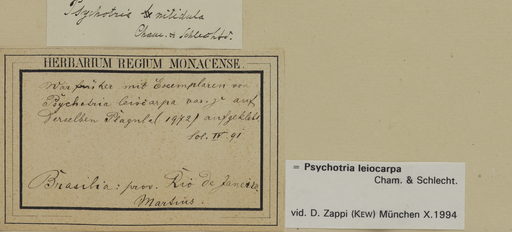 Psychotria nitidula
Cham. & Schlechtd.
HERBARIUM REGIUM MONACENSE.
War früher mit Exemplaren von
Psychotria leiocarpa var. γ auf
derselben (1972) aufgeklebt
Sol. IV 91
Brasilia: prov. Rio de Janeiro
Martius.
= Psychotria leiocarpa
Cham. & Schlecht.
vid. D. Zappi (KEW) München X.1994